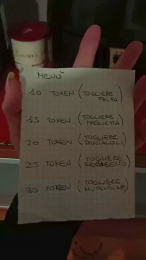 MENÙ
10 TOKEN (TOGLIERE
FELPA)
15 TOKEN (TOGLIERE
MAGLIETTA)
20 TOKEN (TOGLIERE
PANTALONI)
25 TOKEN (TOGLIERE
REGGISENO)
30 TOKEN (TOGLIERE
MUTANDINE)